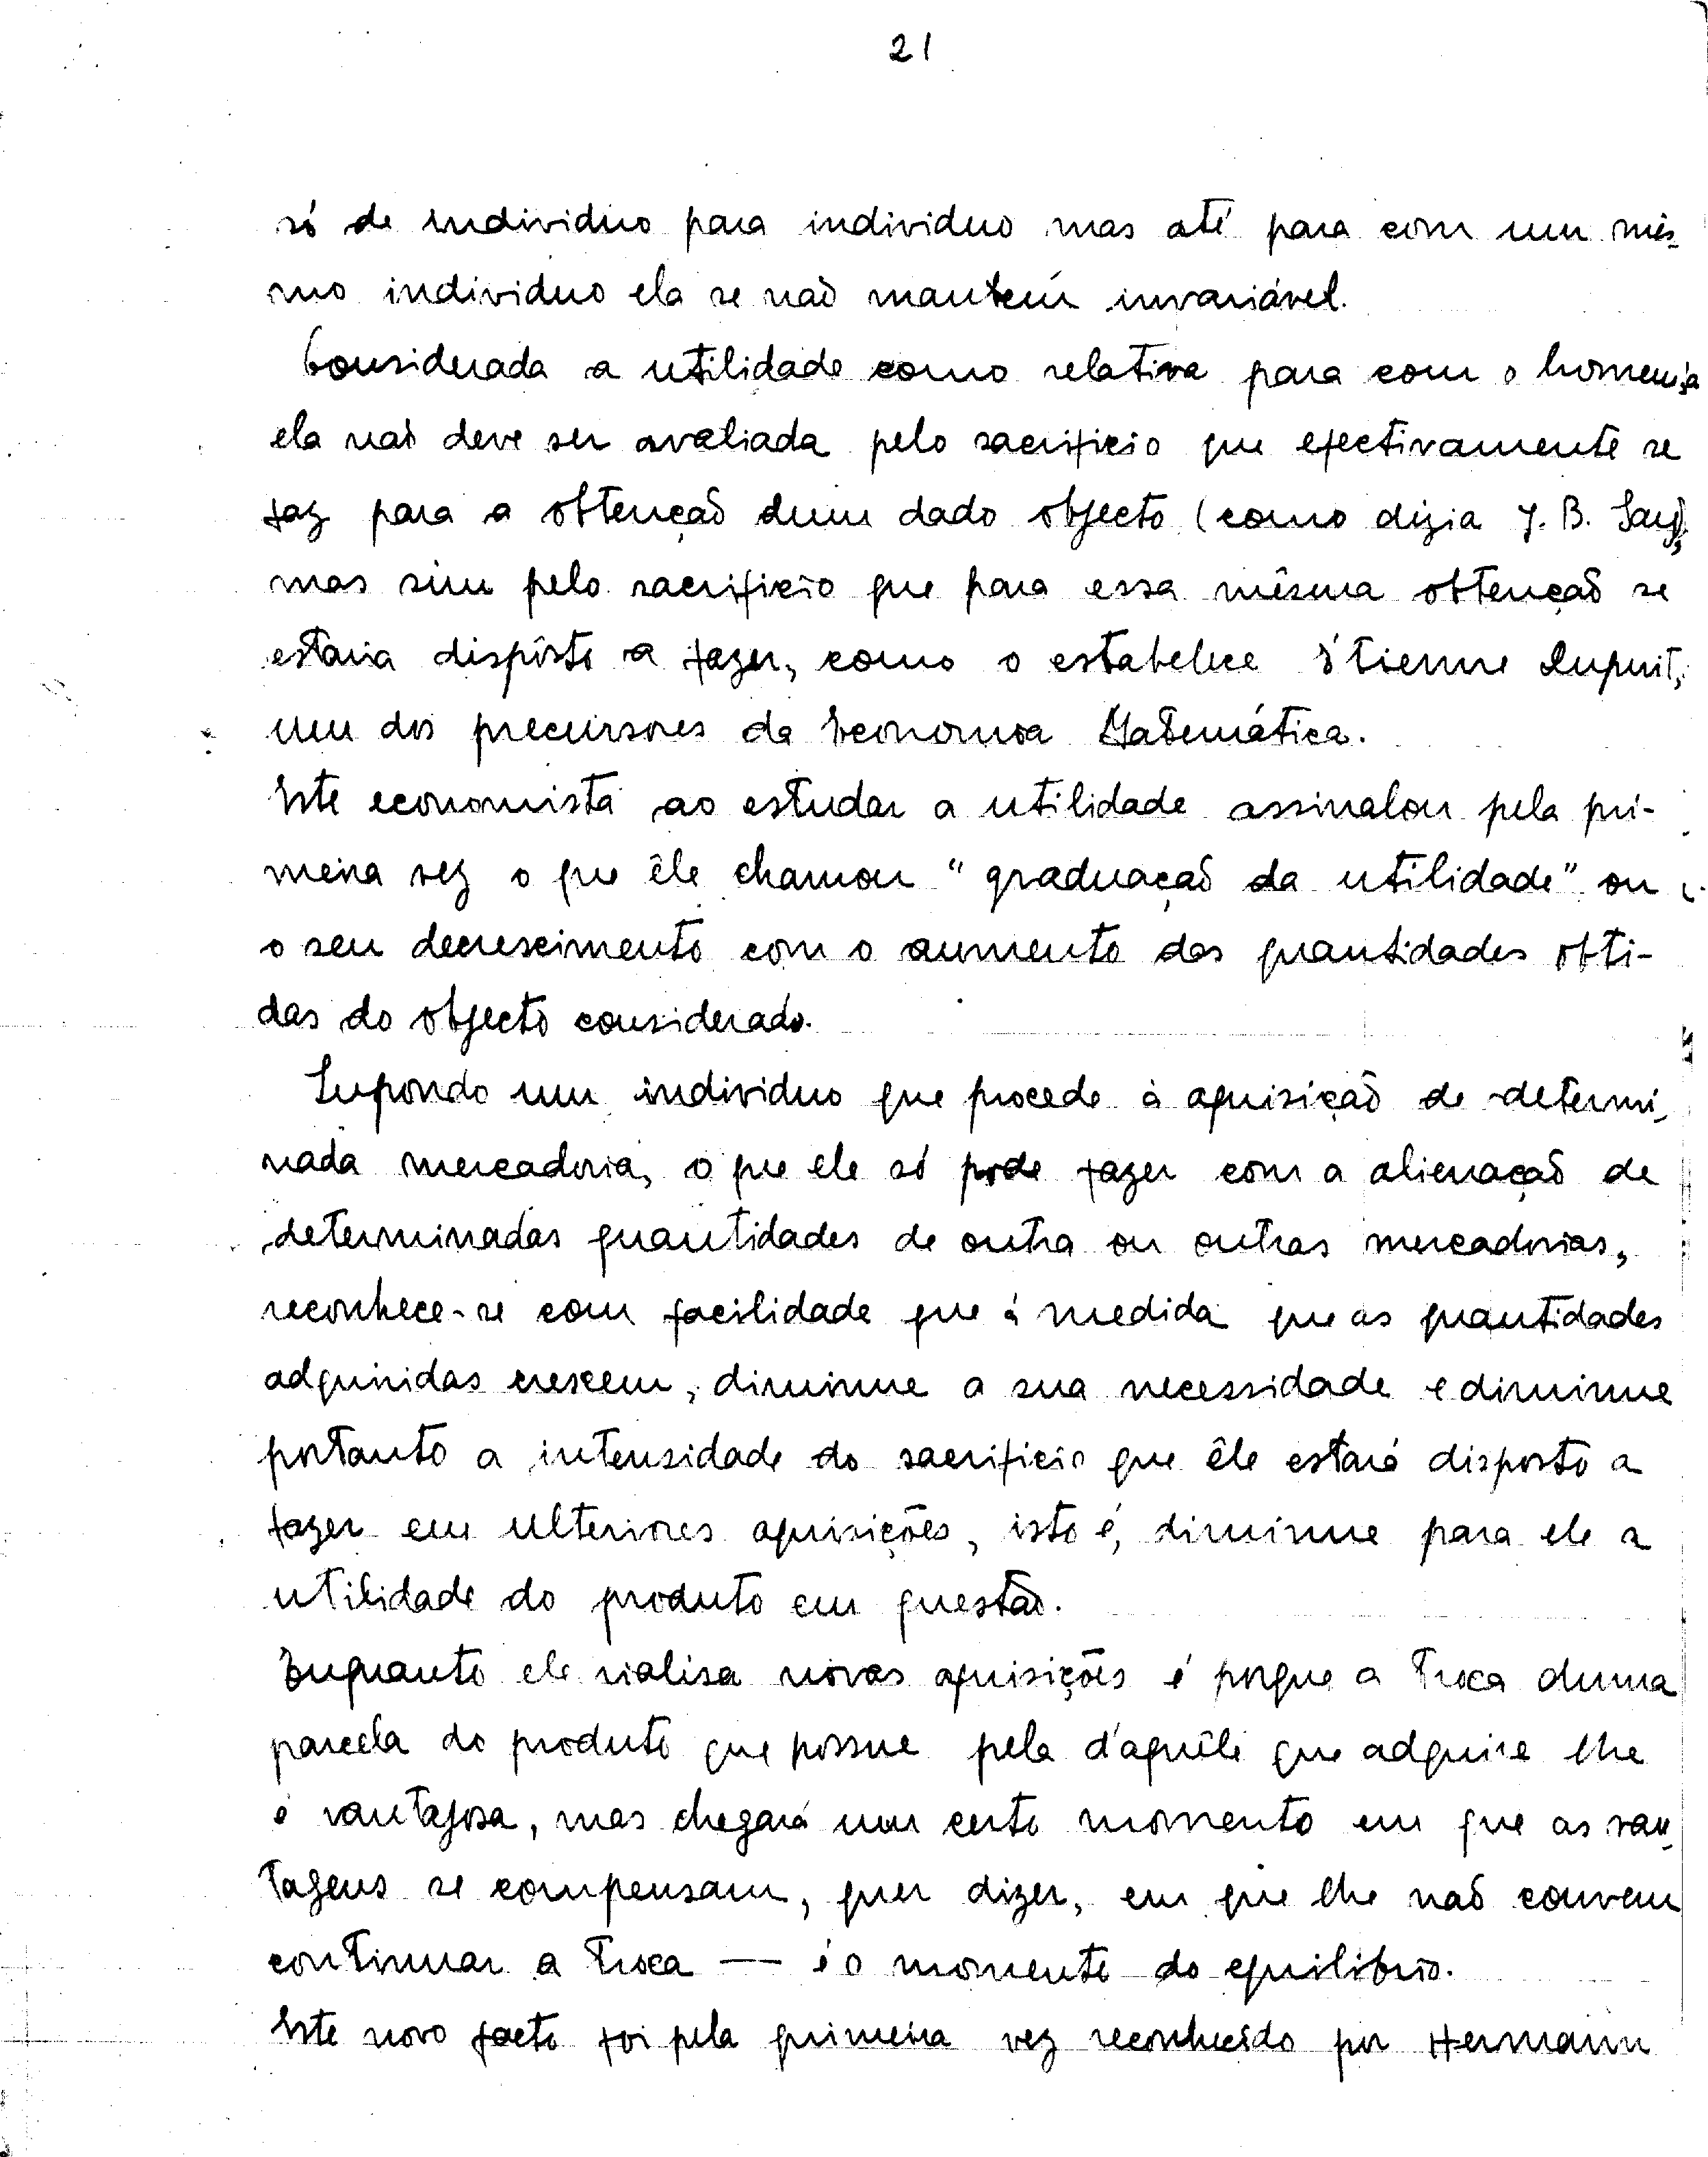 21
só de individuo para individuo mas até para com um mês-
mo individuo ela se não mantem invariável.
Considerada a utilidade como relativa para com o homem, já
ela não deve ser avaliada pelo sacrificio que efectivamente se
faz para a obtenção dum dado objecto (como dizia J. B. Say),
mas sim pelo sacrificio que para essa mêsma obtenção se
estaria dispôsto a fazer, como o estabelece Étienne Dupuit,
um dos precursores da Economia Matemática.
Este economista ao estudar a utilidade assinalou pela pri-
meira vez o que êle chamou "graduação da utilidade" ou
o seu decrescimento com o aumento das quantidades obti-
das do objecto considerado.
Supondo um individuo que procede à aquisição de determi-
nada mercadoria, o que ele só pode fazer com a alienação de
determinadas quantidades de outra ou outras mercadorias,
reconhece-se com facilidade que á medida que as quantidades
adquiridas crescem, diminue a sua necessidade e diminue
portanto a intensidade do sacrificio que êle estará disposto a
fazer em ulteriores aquisições, isto é, diminue para ele a
utilidade do produto em questão.
Enquanto ele rialisa novas aquisições é porque a troca duma
parcela do produto que possue pela d'aquêle que adquire lhe
é vantajosa, mas chegará um certo momento em que as van-
tagens se compensam, quer dizer, em que lhe não convem
continuar a troca — é o momento do equilibrio.
Este novo facto foi pela primeira vez reconhecido por Hermann